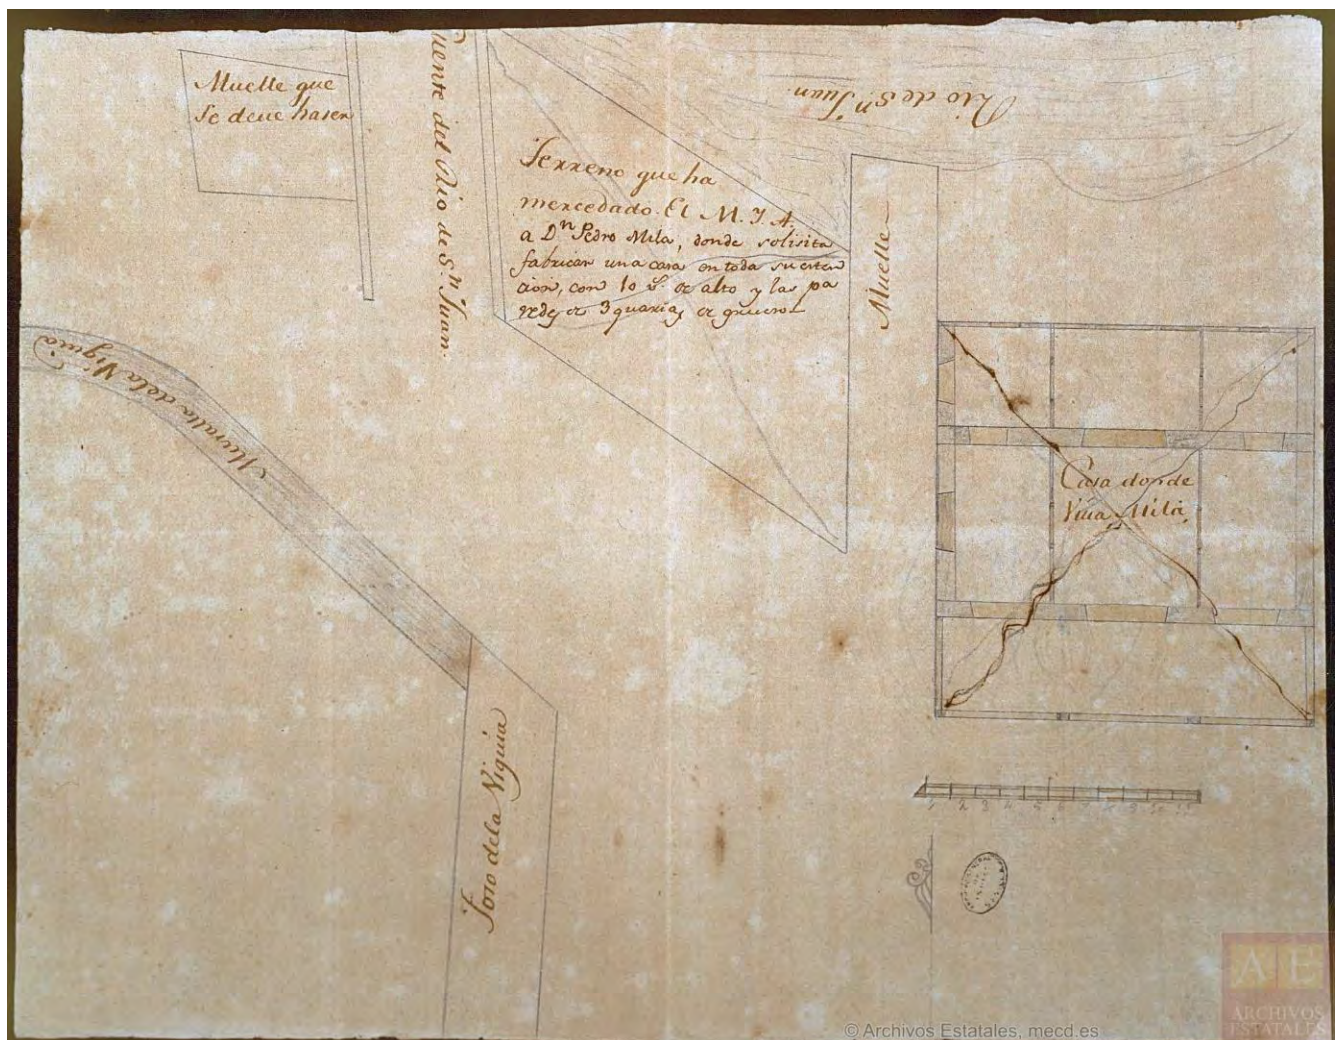 Muelle que
Se deve haser
Puente del Rio de Sn. Juan.
Terreno que ha
mercedado El M. I. A.
a Dn Pedro Mila, donde solisita
fabricar una casa en toda su esten
cion, con 10 vs. de alto y las pa
redes de 3 quartas de grueso
Rio de Sn. Juan.
Muelle
Muralla dela Viguia
Casa donde
Viuia Milá
Foso dela Viguia
1 2 3 4 5 6 7 8 9 10
© Archivos Estatales, mecd.es
AE
ARCHIVOS
ESTATALES